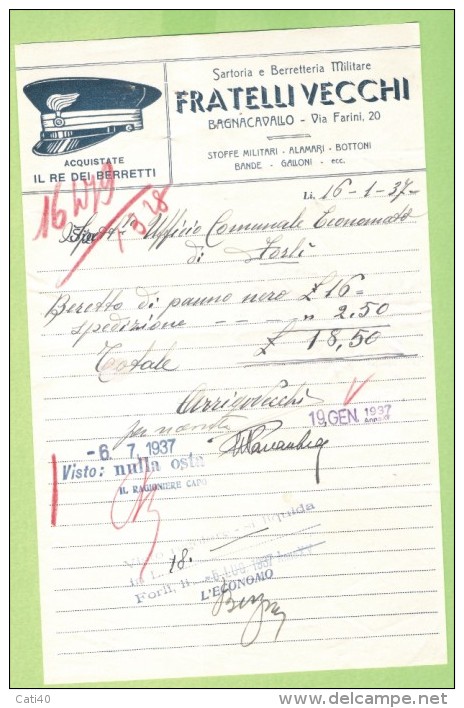 Sartoria e Berretteria Militare
FRATELLI VECCHI
BAGNACAVALLO - Via Farini, 20
STOFFE MILITARI - ALAMARI - BOTTONI
BANDE - GALLONI - ecc.
ACQUISTATE
IL RE DEI BERRETTI
Li, 16-1-37-
Ufficio Comunale Economato
di Forlì
Beretto di panno nero £ 16=
spedizione - - - - " 2.50
Totale £ 18,50
Arrigo Vecchi
19 GEN. 1937
- 6. 7. 1937
Visto: nulla osta
IL RAGIONIERE CAPO
18.
Forlì, li
1937
L'ECONOMO
Cati40
delcampe.net